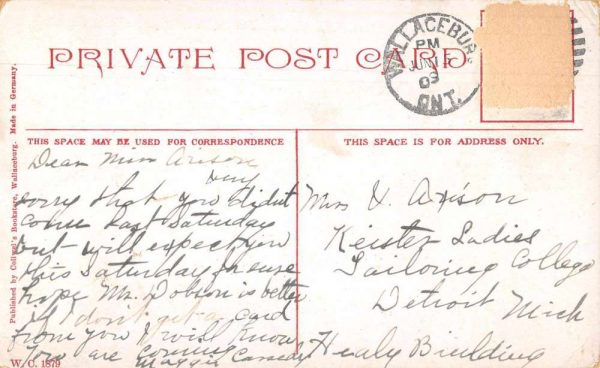 PRIVATE POST CARD
WALLACEBURG
PM
JUN
09
ONT.
Published by Colwell's Bookstore, Wallaceburg. Made in Germany.
THIS SPACE MAY BE USED FOR CORRESPONDENCE
Dear Miss Arison
Very
sorry that you didnt
come last Saturday
but will expect you
this Saturday for sure
hope Mr. Dobson is better
If I don't get a card
from you I will know
You are coming
Maggie
W. C. 1879
THIS SPACE IS FOR ADDRESS ONLY.
Miss V. Arison
Keister Ladies
Tailoring College
Detroit Mich
Healy Building